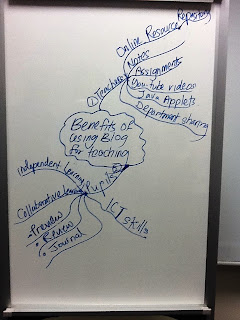 Online Resource Repository
Notes
Assignments
Youtube videos
Java Applets
Department sharing
① Teachers
Benefits of
using Blog
for teaching
② Pupils
Independent Learning
Collaborative learning
• Preview
• Review
• Journal
ICT skills